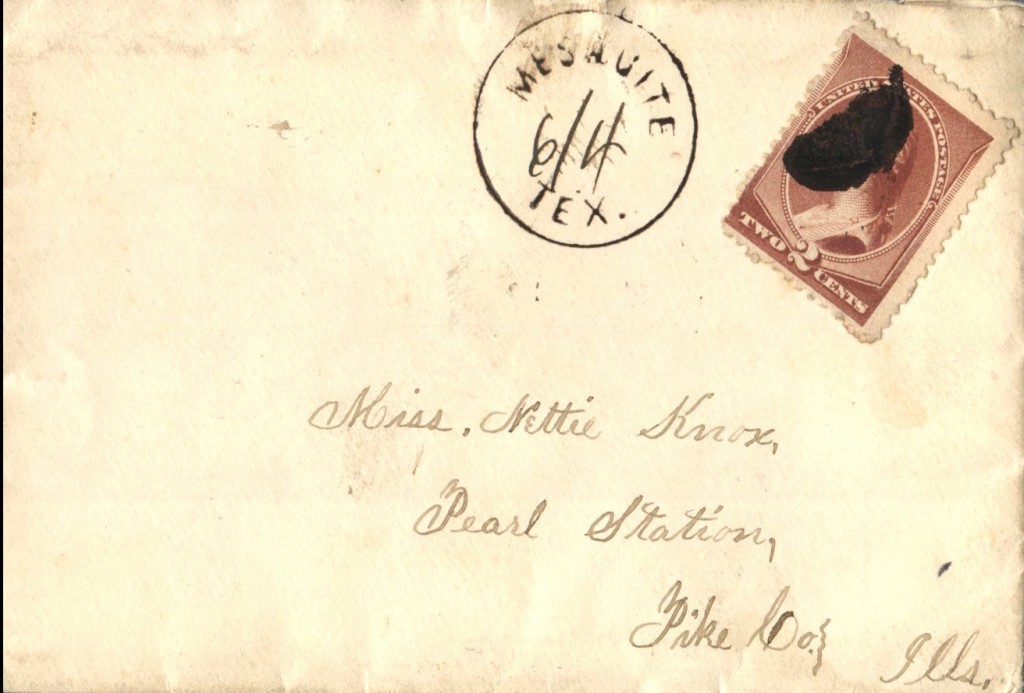 MESQUITE
6/4
TEX.
UNITED STATES POSTAGE
TWO 2 CENTS
Miss. Nettie Knox,
Pearl Station,
Pike Co.}
Ills.